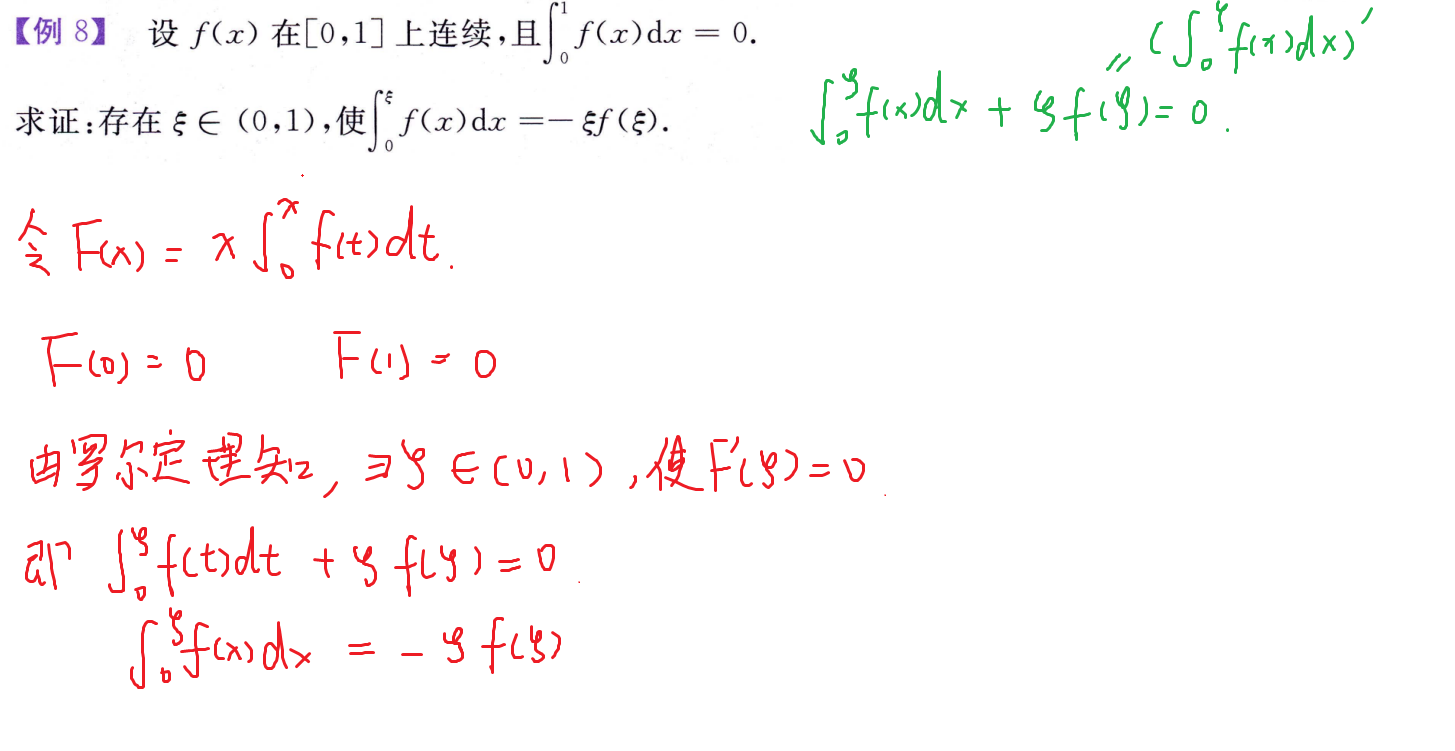 【例 8】 设 f(x) 在[0,1]上连续,且∫₀¹ f(x)dx = 0.
求证:存在 ξ ∈ (0,1),使∫₀^ξ f(x)dx =− ξf(ξ).
(∫₀^ξ f(x)dx)′
∥
∫₀^ξ f(x)dx + ξf(ξ) = 0.
令 F(x) = x∫₀ˣ f(t)dt.
F(0) = 0 F(1) = 0
由罗尔定理知, ∃ξ ∈ (0,1), 使F′(ξ) = 0
即 ∫₀^ξ f(t)dt + ξ f(ξ) = 0
∫₀^ξ f(x)dx = − ξ f(ξ)